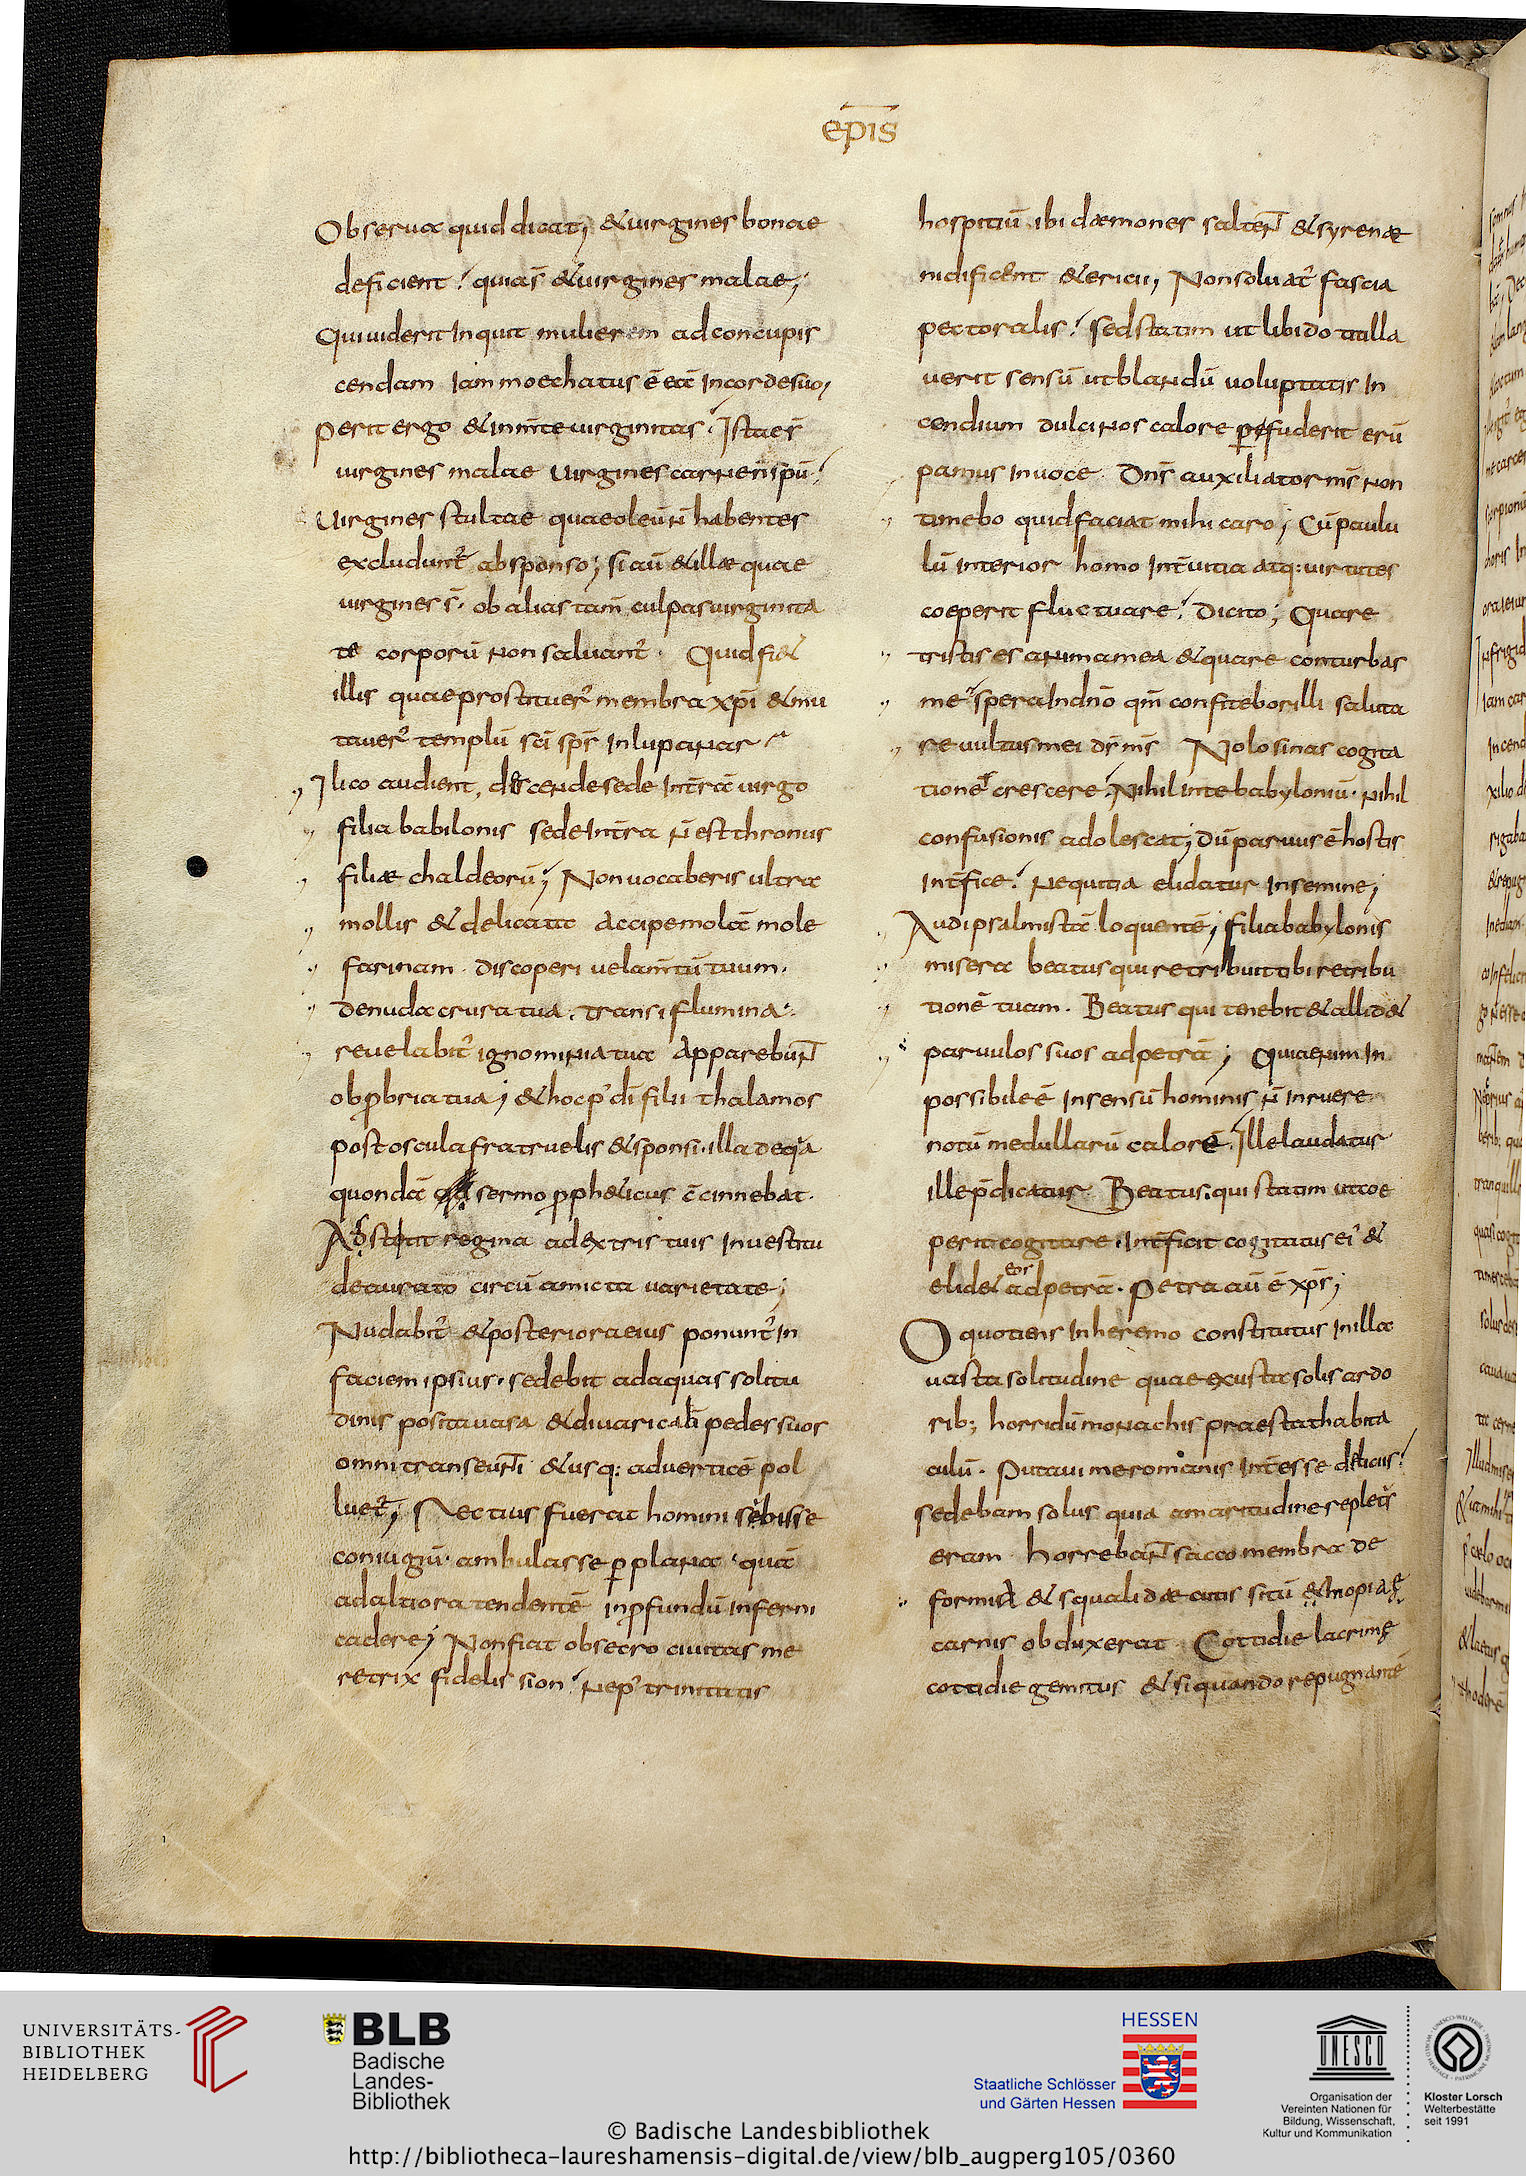 ep̅is
Obserua quid dicat; & uirgines bonae
deficient? quia s̄ & uirgines malae;
Qui uiderit inquit mulierem ad concupis
cendam iam moechatus ē eā in corde suo;
perit ergo & in m̄te uirginitas. Istae s̄
uirgines malae uirgines carne n̄ spū?
Uirgines stultae quae oleū n̄ habentes
excludunt᷑ ab sponso; si aū & illae quae
uirgines s̄. ob alias tam̄ culpas uirginita
te corporū non saluant᷑. Quid fi&
illis quae prostituer᷑ membra xp̄i & mu
tauer᷑ templū sc̄i sp̄s in lupanar
Ilico audient, descende sede in t̄rā uirgo
filia babilonis sede in t̄ra n̄ est thronus
filiae chaldeorū; Non uocaberis ultra
mollis & delicata accipe molā mole
farinam. discoperi uelam̄tū tuum.
denuda crura tua. transi flumina.
reuelabit᷑ ignominia tua apparebunt̄
obp̄bria tua; & hoc p᷑ dī filii thalamos
post oscula fratruelis & sponsi. illa de q̇a
quondā sermo pph&icus c̄cinnebat.
Adstitit regina a dextris tuis in uestitu
deaurato circū amicta uarietate;
Nudabit᷑ & posteriora eius ponunt᷑ in
faciem ipsius. sedebit ad aquas solitu
dinis posita uasa & diuaricabit pedes suos
omni transeunti & usq: ad uerticē pol
luet᷑; Rectius fuerat homini subisse
coniugiū. ambulasse p plana. quā
ad altiora tendentē in pfundū inferni
cadere; Non fiat obsecro ciuitas me
retrix fidelis sion? ne p᷑ trinitatis
hospitiū ibi daemones saltent̄ & syrenae
nidificent & ericii; Non soluat᷑ fascia
pectoralis? sed statim ut libido titilla
uerit sensū ut blandū uoluptatis in
cendium dulci nos calore perfuderit erū
pamus in uoce. Dn̄s auxiliator m̄s non
timebo quid faciat mihi caro; Cū paulu
lū interior homo int̄ uitia atq: uirtutes
coeperit fluctuare? dicito; Quare
tristis es anima mea & quare conturbas
me? spera in dn̄o qm̄ confitebor illi saluta
re uultus mei ds̄ m̄s Nolo sinas cogita
tionē crescere? Nihil in te babyloniū. nihil
confusionis adolescat; dū paruus ē hostis
int̄fice? nequitia elidatur in semine;
Audi psalmistā loquentē; filia babylonis
misera beatus qui retribuit tibi retribu
tionē tuam. Beatus qui tenebit & allid&
paruulos suos ad petrā; Quia enim in
possibile ē in sensū hominis n̄ inruere
notū medullarū calorē. Ille laudatur
ille p̄dicatur Beatus. qui statim ut coe
perit cogitare. int̄ficit cogitatus ei᷑ &
elid& eos ad petrā. Petra aū ē xp̄s;
O quotiens in heremo constitutus in illa
uasta solitudine quae exusta solis ardo
rib; horridū monachis praestat habita
culū. Putaui me romanis int̄esse deliciis?
sedebam solus quia amaritudine repletus
eram. Horrebant̄ sacco membra de
formia & squalidae cutis sitū & inopia
carnis obduxerat. Cottidie lacrimę
cottidie gemitus & si quando repugnantē
UNIVERSITÄTS-
BIBLIOTHEK
HEIDELBERG
BLB
Badische
Landes-
Bibliothek
HESSEN
Staatliche Schlösser
und Gärten Hessen
UNESCO
Organisation der
Vereinten Nationen für
Bildung, Wissenschaft,
Kultur und Kommunikation
Kloster Lorsch
Welterbestätte
seit 1991
© Badische Landesbibliothek
http://bibliotheca-laureshamensis-digital.de/view/blb_augperg105/0360